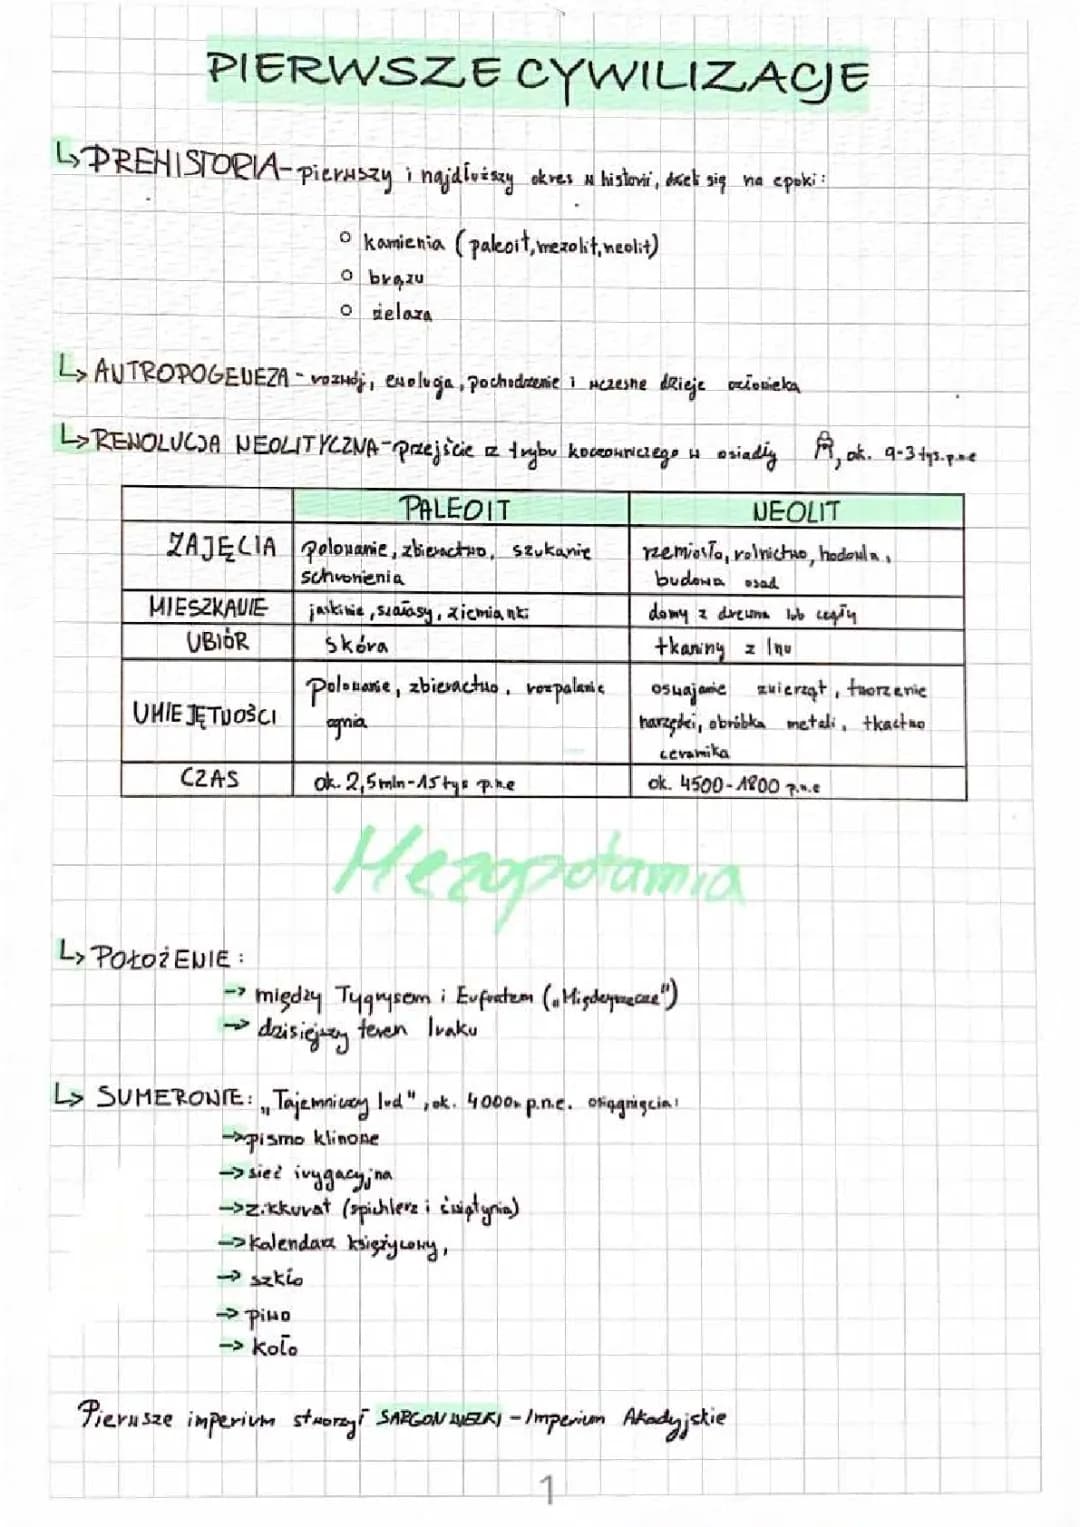 PIERWSZE CYWILIZACJE
↳ PREHISTORIA - pierwszy i najdłuższy okres w historii, dzieli się na epoki:
○ kamienia (paleoit, mezolit, neolit)
○ brązu
○ żelaza
↳ ANTROPOGENEZA - rozwój, ewolucja, pochodzenie i wczesne dzieje człowieka
↳ REWOLUCJA NEOLITYCZNA - przejście z trybu koczowniczego w osiadły, ok. 9-3 tys. p.n.e
PALEOIT NEOLIT
ZAJĘCIA polowanie, zbieractwo, szukanie rzemiosło, rolnictwo, hodowla,
schronienia budowa osad
MIESZKANIE jaskinie, szałasy, ziemianki domy z drewna lub cegły
UBIÓR skóra tkaniny z lnu
Polowanie, zbieractwo, rozpalanie oswajanie zwierząt, tworzenie
UMIEJĘTNOŚCI ognia narzędzi, obróbka metali, tkactwo
ceramika
CZAS ok. 2,5 mln-15 tys p.n.e ok. 4500-1800 p.n.e
Mezopotamia
↳ POŁOŻENIE:
→ między Tygrysem i Eufratem („Międzyrzecze")
→ dzisiejszy teren Iraku
↳ SUMEROWIE: „Tajemniczy lud", ok. 4000r p.n.e. osiągnięcia:
→ pismo klinowe
→ sieć irygacyjna
→ zikkurat (spichlerz i świątynia)
→ kalendarz księżycowy,
→ szkło
→ piwo
→ koło
Pierwsze imperium stworzył SARGON WIELKI - Imperium Akadyjskie
1